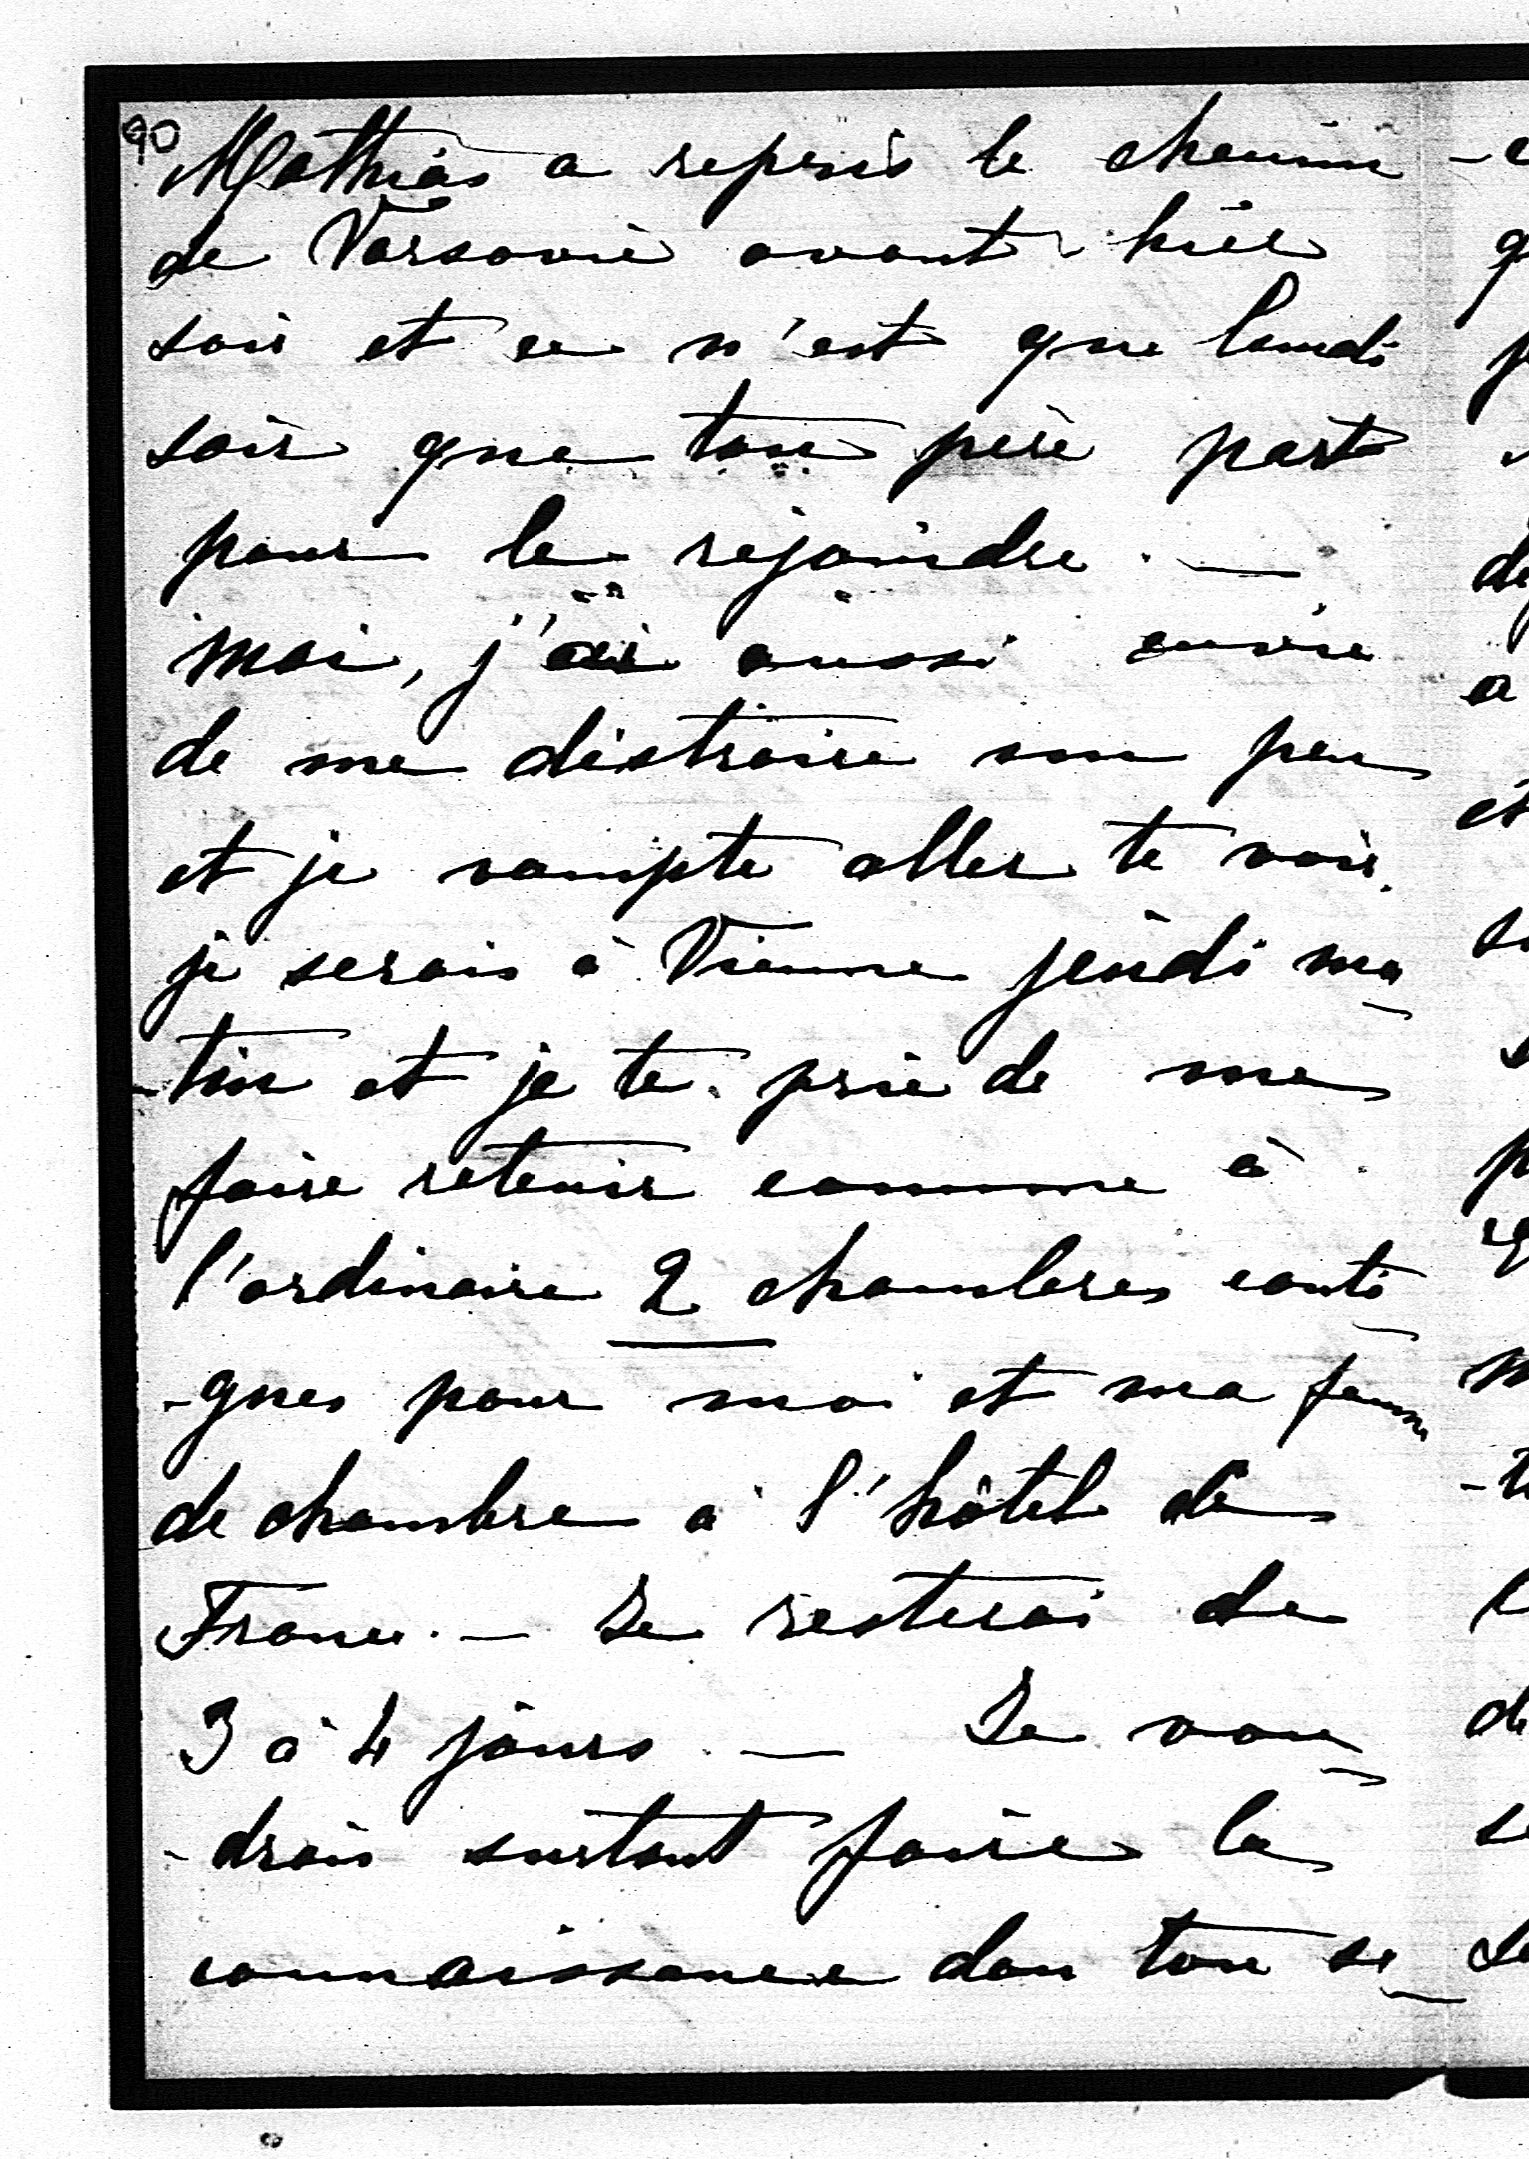 90
Mathias a repris le chemin
de Varsovie avant-hier
soir et ce n'est que lundi
soir que ton père part
pour le rejoindre. —
Moi, j'ai aussi envie
de me distraire un peu
et je compte aller te voir.
je serais à Vienne jeudi ma
-tin et je te prie de me
faire retenir comme à
l'ordinaire 2 chambres conti
-gues pour moi et ma femme
de chambre à l'hôtel de
France. — Je resterai de
3 à 4 jours. — Je vou
-drais surtout faire la
connaissance dans ton se